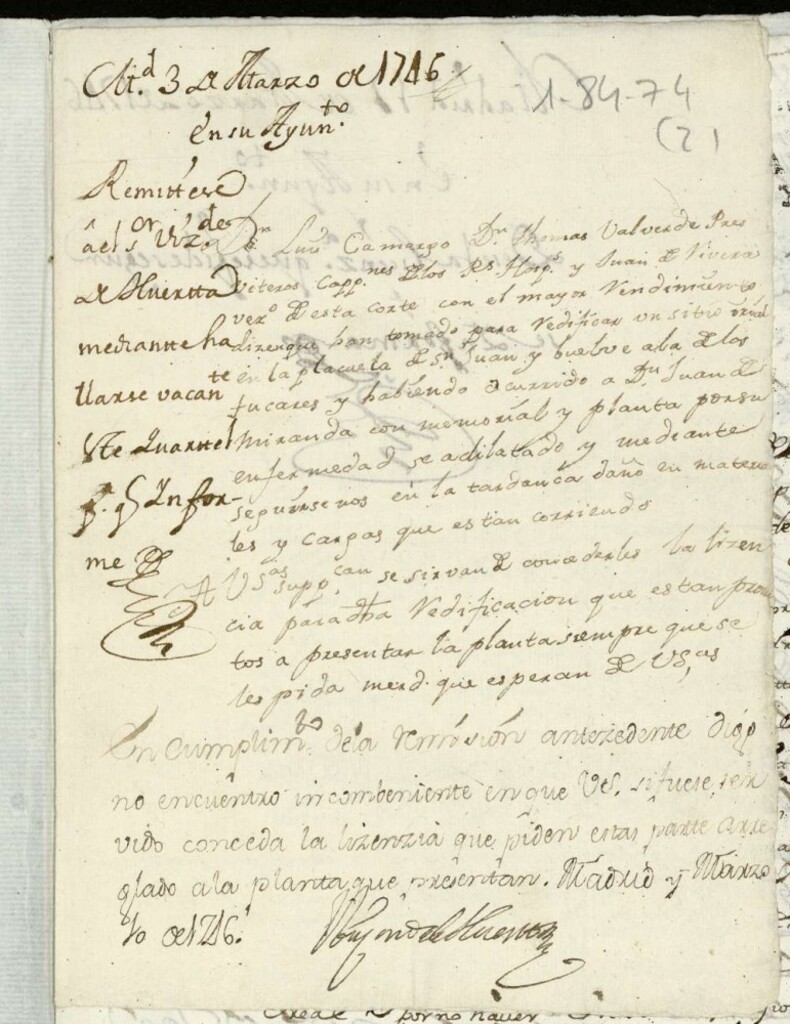 M.d 3 de Marzo de 1746
En su Ayun.to
1-84-74
(2)
Remittese
â el s.or Viz.de
de Huertta
mediante ha
llarse vacan
te este Quartel
p.a q.e Informe
D.n Luis Camargo D.n Thomas Valverde Pres
viteros Capp.nes de los Rs. Hosp.s y Juan de Rivera
vez.o de esta corte con el mayor Rendimiento
dizen que han tomado para Redificar un sitio
en la plazuela de Sn Juan y buelve a la de los
fucares y habiendo ocurrido a Dn Juan de
Miranda con memorial y planta por su
enfermedad se a dilatado y mediante
seguirsenos en la tardanca daño en materia
les y cargas que estan corriendo
A V.S.as supp.can se sirvan de concederles la lizen
cia para dha Redificacion que estan pron
tos a presentar la planta siempre que se
les pida merd. que esperan de VS.as
En cumplim.to de la remision antezedente digo
no encuentro incombeniente en que VS. si fuese ser
vido conceda la lizenzia que piden estas parte arre
glado a la planta que presentan. Madrid y Marzo
10 de 1746.